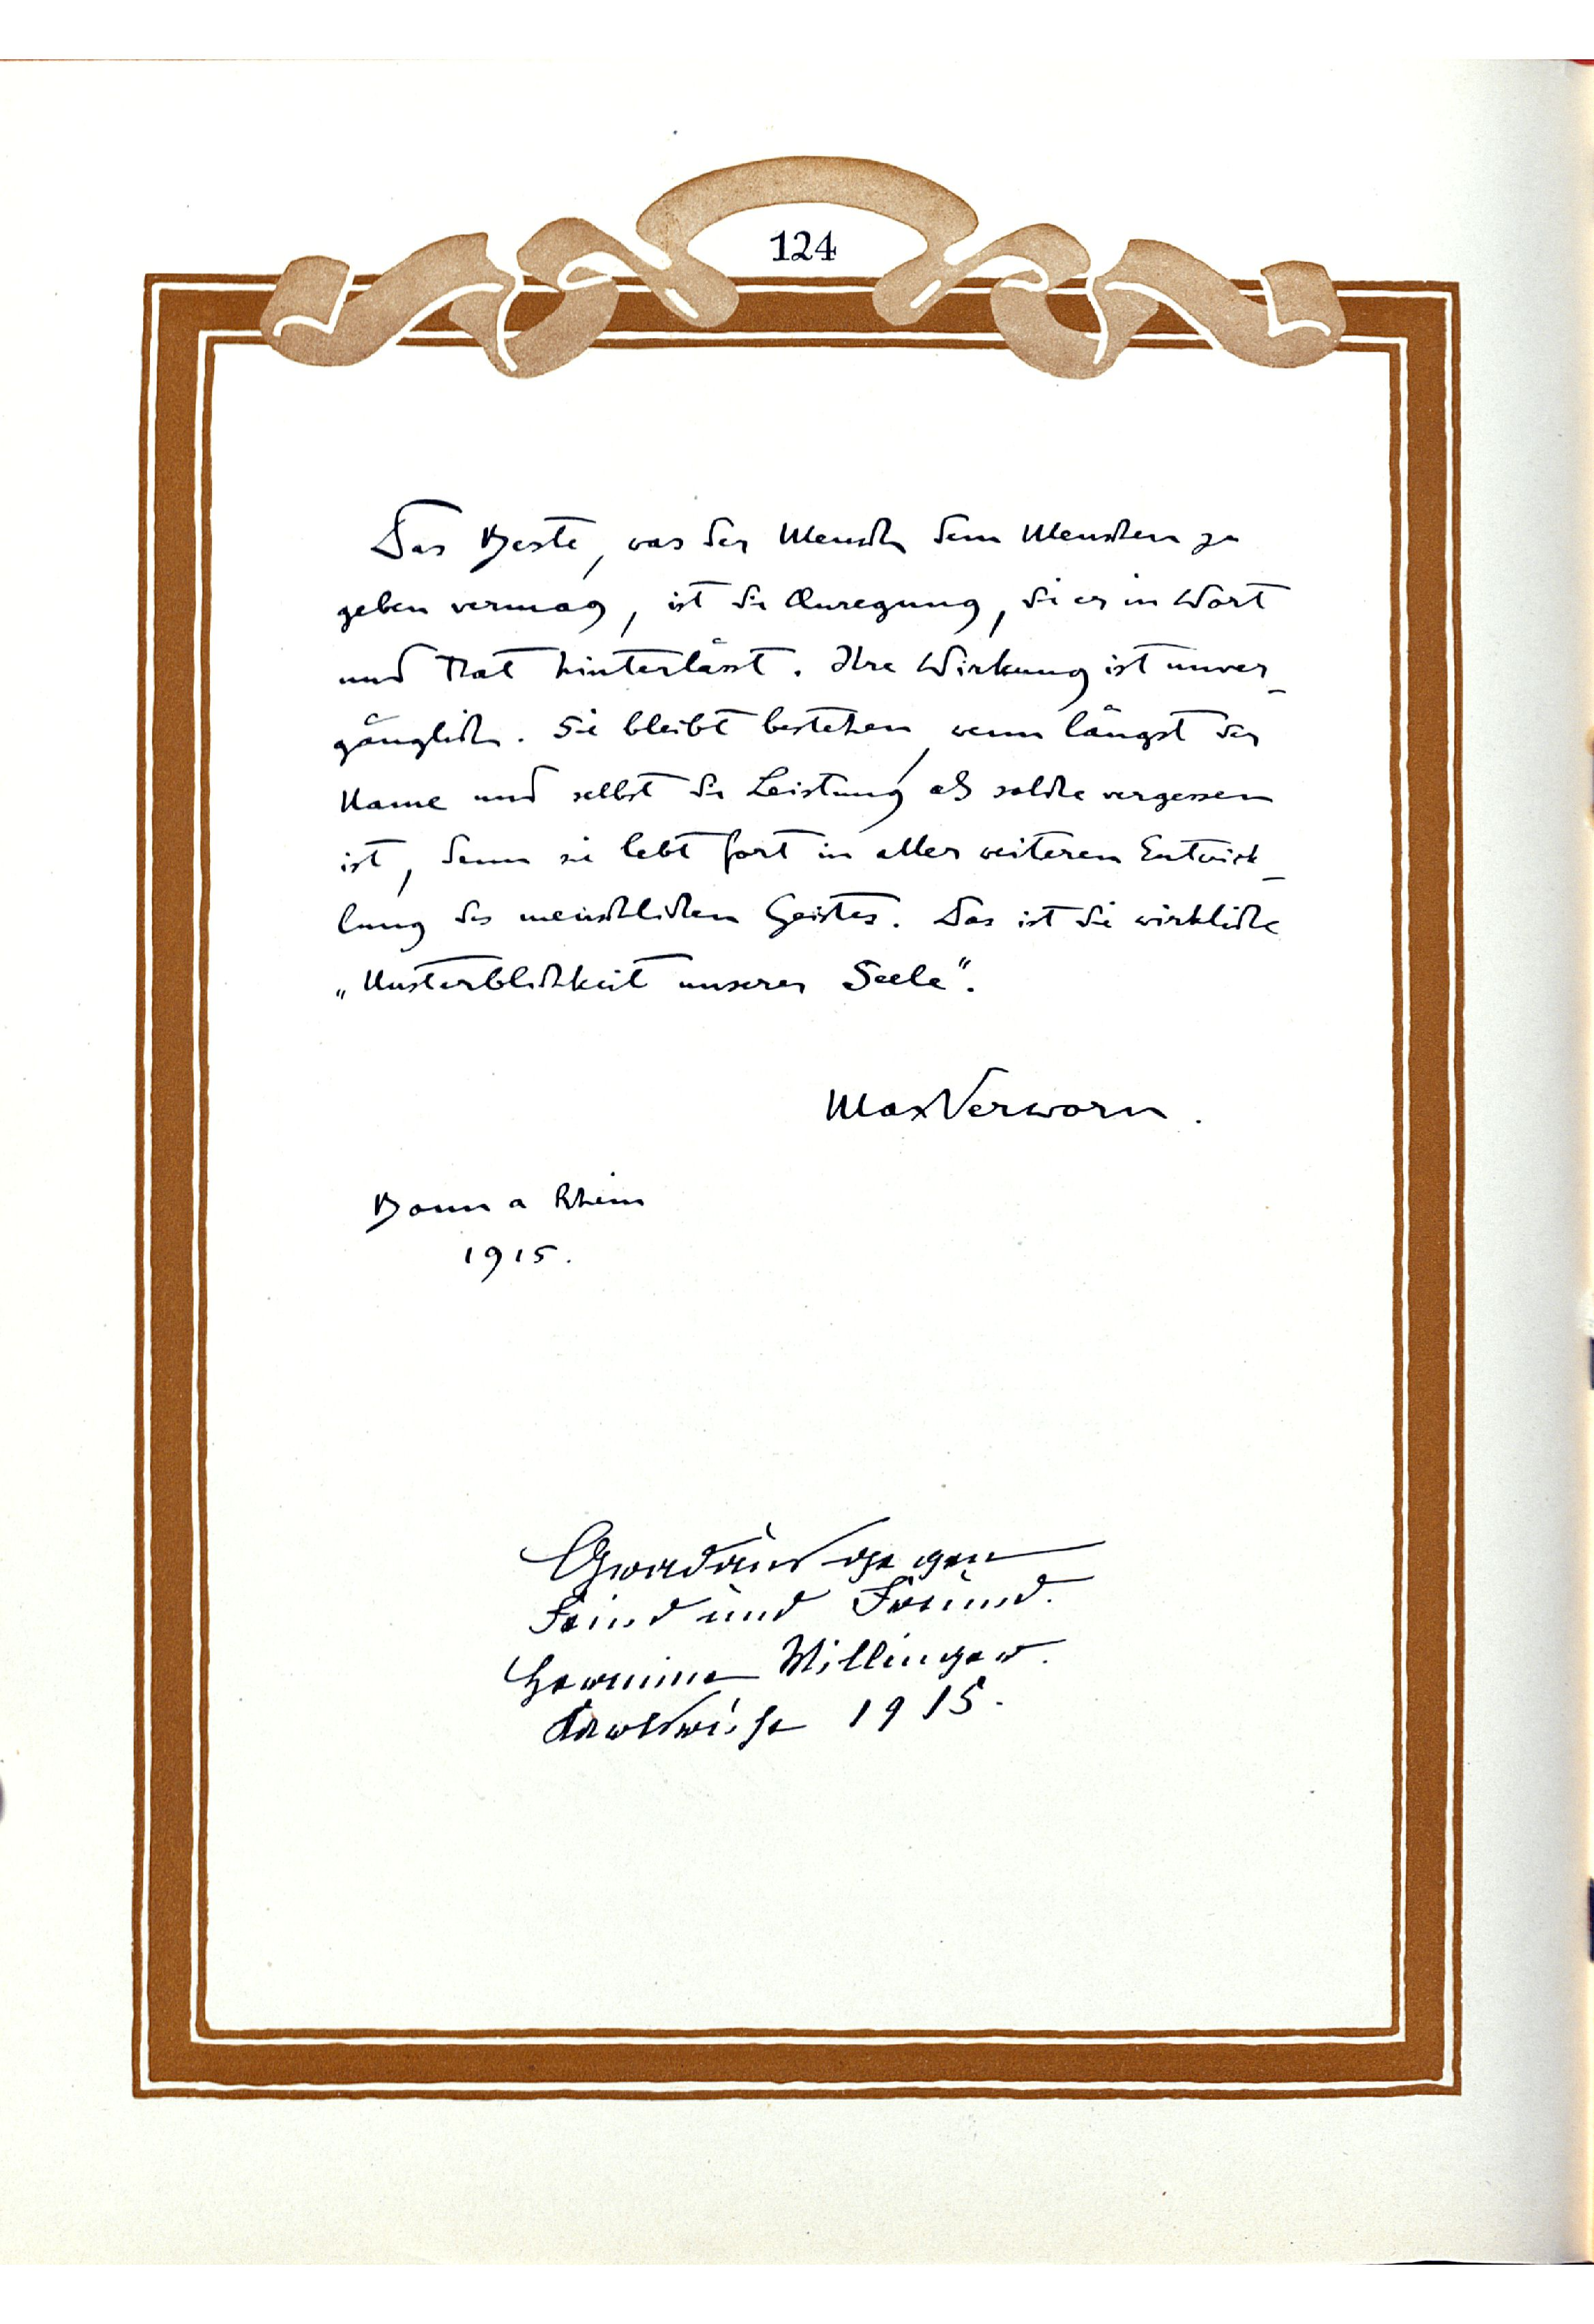 124
Das Beste, was der Mensch dem Menschen zu
geben vermag, ist die Anregung, die er in Wort
und That hinterlässt. Ihre Wirkung ist unver-
gänglich. Sie bleibt bestehen, wenn längst der
Name und selbst die Leistung als solche vergessen
ist, denn sie lebt fort in aller weiteren Entwick-
lung des menschlichen Geistes. Das ist die wirkliche
„Unsterblichkeit unserer Seele“.
Max Verworn.
Bonn a Rhein
1915.
Gradaus gegen
Feind und Freund.
Hermine Villinger.
Karlsruhe 1915.